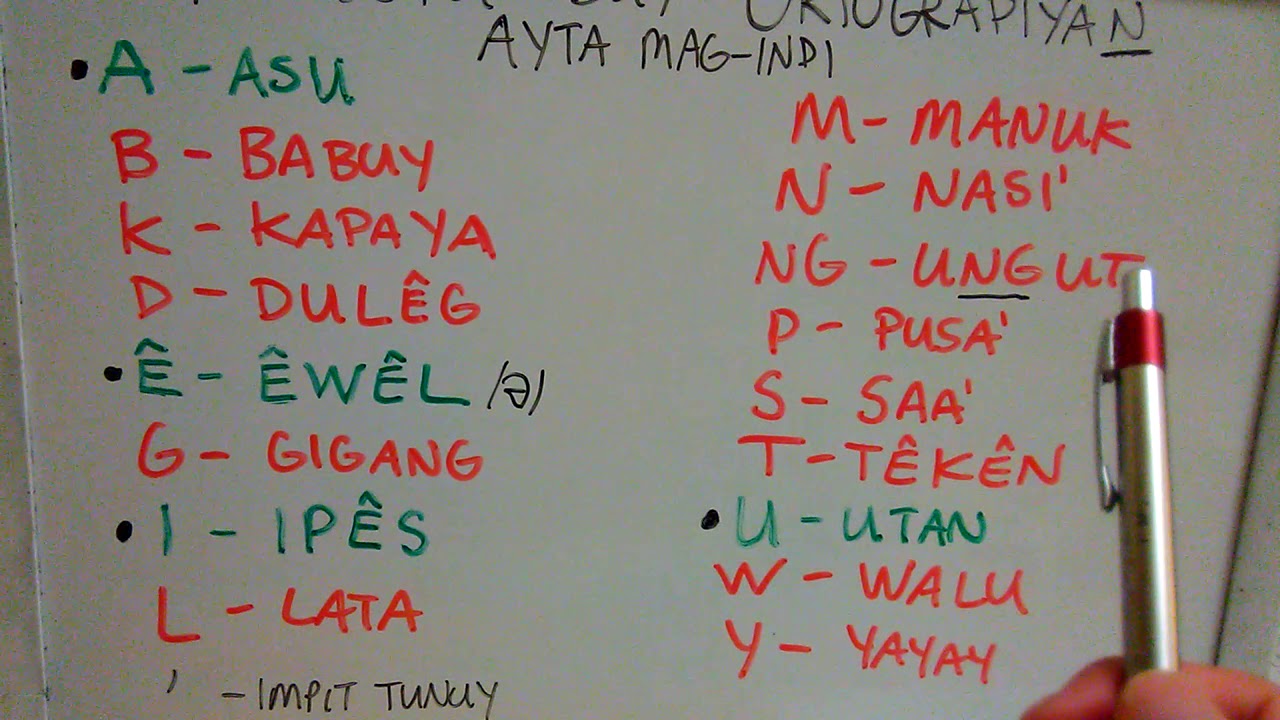 ORTOGRAPIYAN
AYTA MAG-INDI
• A - ASU
B - BABUY
K - KAPAYA
D - DULÊG
• Ê - ÊWÊL /ə/
G - GIGANG
• I - IPÊS
L - LATA
' - IMPIT TUNUY
M - MANUK
N - NASI'
NG - UNGUT
P - PUSA'
S - SAA'
T - TÊKÊN
• U - UTAN
W - WALU
Y - YAYAY